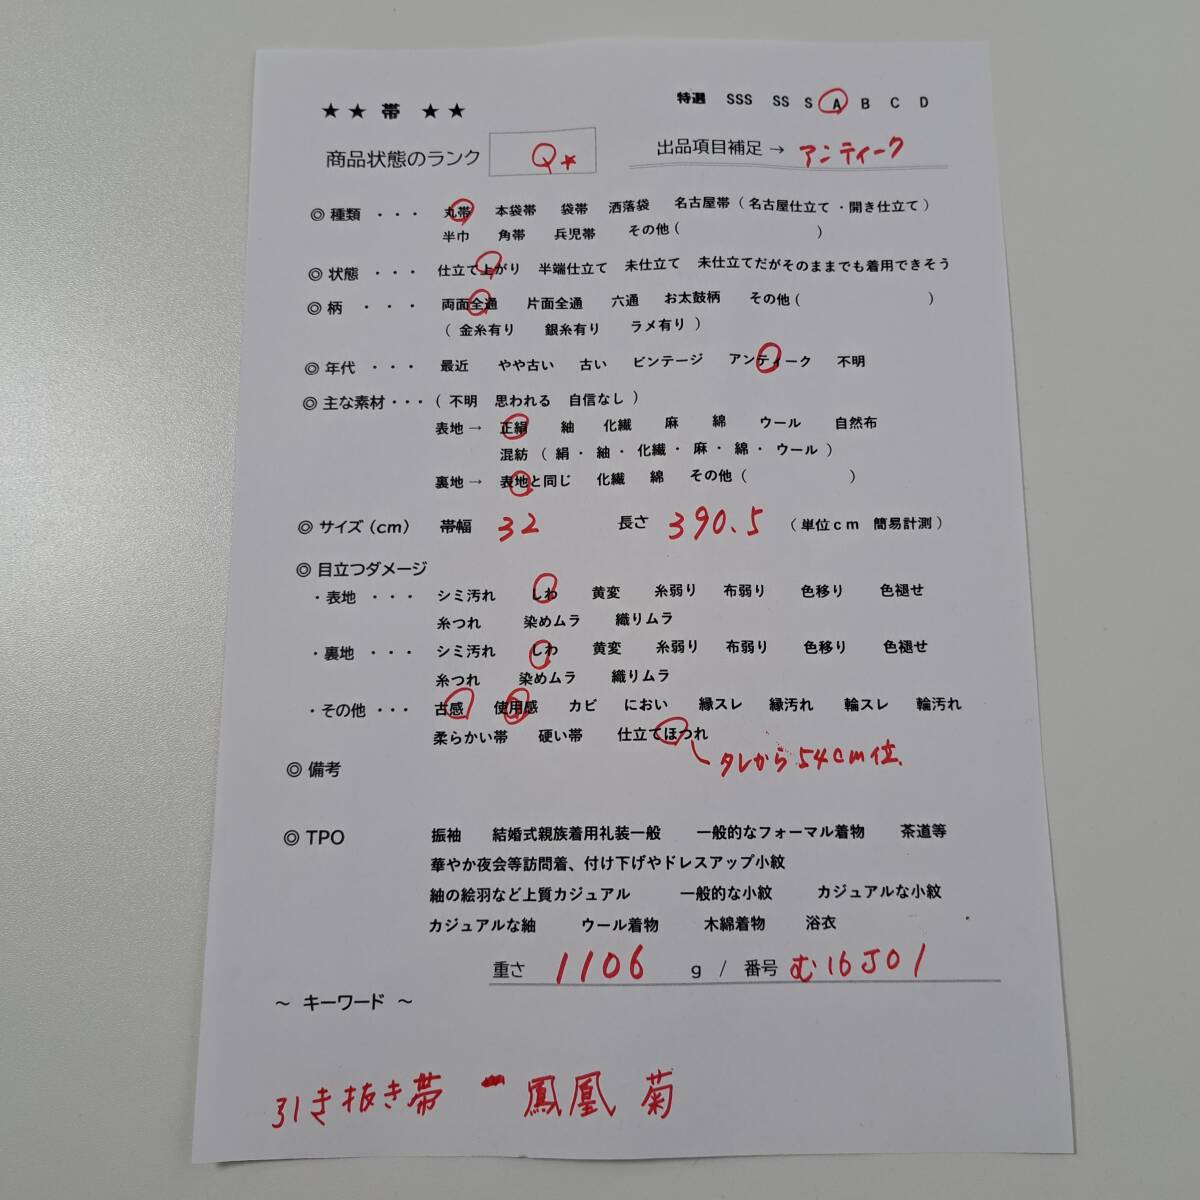 ★ ★ 帯 ★ ★
特選 SSS SS S A B C D
商品状態のランク Q★
出品項目補足 → アンティーク
◎ 種類 ・・・ 丸帯 本袋帯 袋帯 洒落袋 名古屋帯 ( 名古屋仕立て ・ 開き仕立て )
半巾 角帯 兵児帯 その他 ( )
◎ 状態 ・・・ 仕立て上がり 半端仕立て 未仕立て 未仕立てだがそのままでも着用できそう
◎ 柄 ・・・ 両面全通 片面全通 六通 お太鼓柄 その他 ( )
( 金糸有り 銀糸有り ラメ有り )
◎ 年代 ・・・ 最近 やや古い 古い ビンテージ アンティーク 不明
◎ 主な素材 ・・・ ( 不明 思われる 自信なし )
表地 → 正絹 紬 化繊 麻 綿 ウール 自然布
混紡 ( 絹 ・ 紬 ・ 化繊 ・ 麻 ・ 綿 ・ ウール )
裏地 → 表地と同じ 化繊 綿 その他 ( )
◎ サイズ (cm) 帯幅 32 長さ 390.5 ( 単位cm 簡易計測 )
◎ 目立つダメージ
・表地 ・・・ シミ汚れ しわ 黄変 糸弱り 布弱り 色移り 色褪せ
糸つれ 染めムラ 織りムラ
・裏地 ・・・ シミ汚れ しわ 黄変 糸弱り 布弱り 色移り 色褪せ
糸つれ 染めムラ 織りムラ
・その他 ・・・ 古感 使用感 カビ におい 縁スレ 縁汚れ 輪スレ 輪汚れ
柔らかい帯 硬い帯 仕立てほつれ
タレから54cm位、
◎ 備考
◎ TPO 振袖 結婚式親族着用礼装一般 一般的なフォーマル着物 茶道等
華やか夜会等訪問着、付け下げやドレスアップ小紋
紬の絵羽など上質カジュアル 一般的な小紋 カジュアルな小紋
カジュアルな紬 ウール着物 木綿着物 浴衣
重さ 1106 g / 番号 む16J01
～ キーワード ～
引き抜き帯 鳳凰 菊